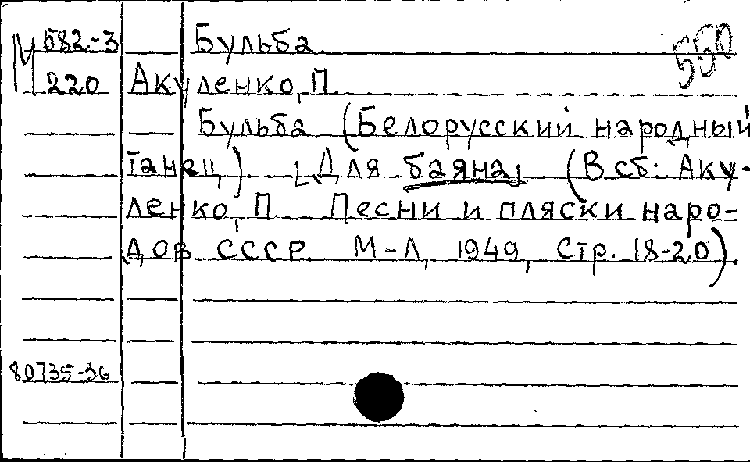 М 582-3 Бульба 550
220 Акуленко, П.
Бульба (Белорусский народный
танец). [Для баяна] (В сб: Аку-
ленко, П. Песни и пляски наро-
дов СССР. М-Л, 1949, Стр. 18-20).
80735-36